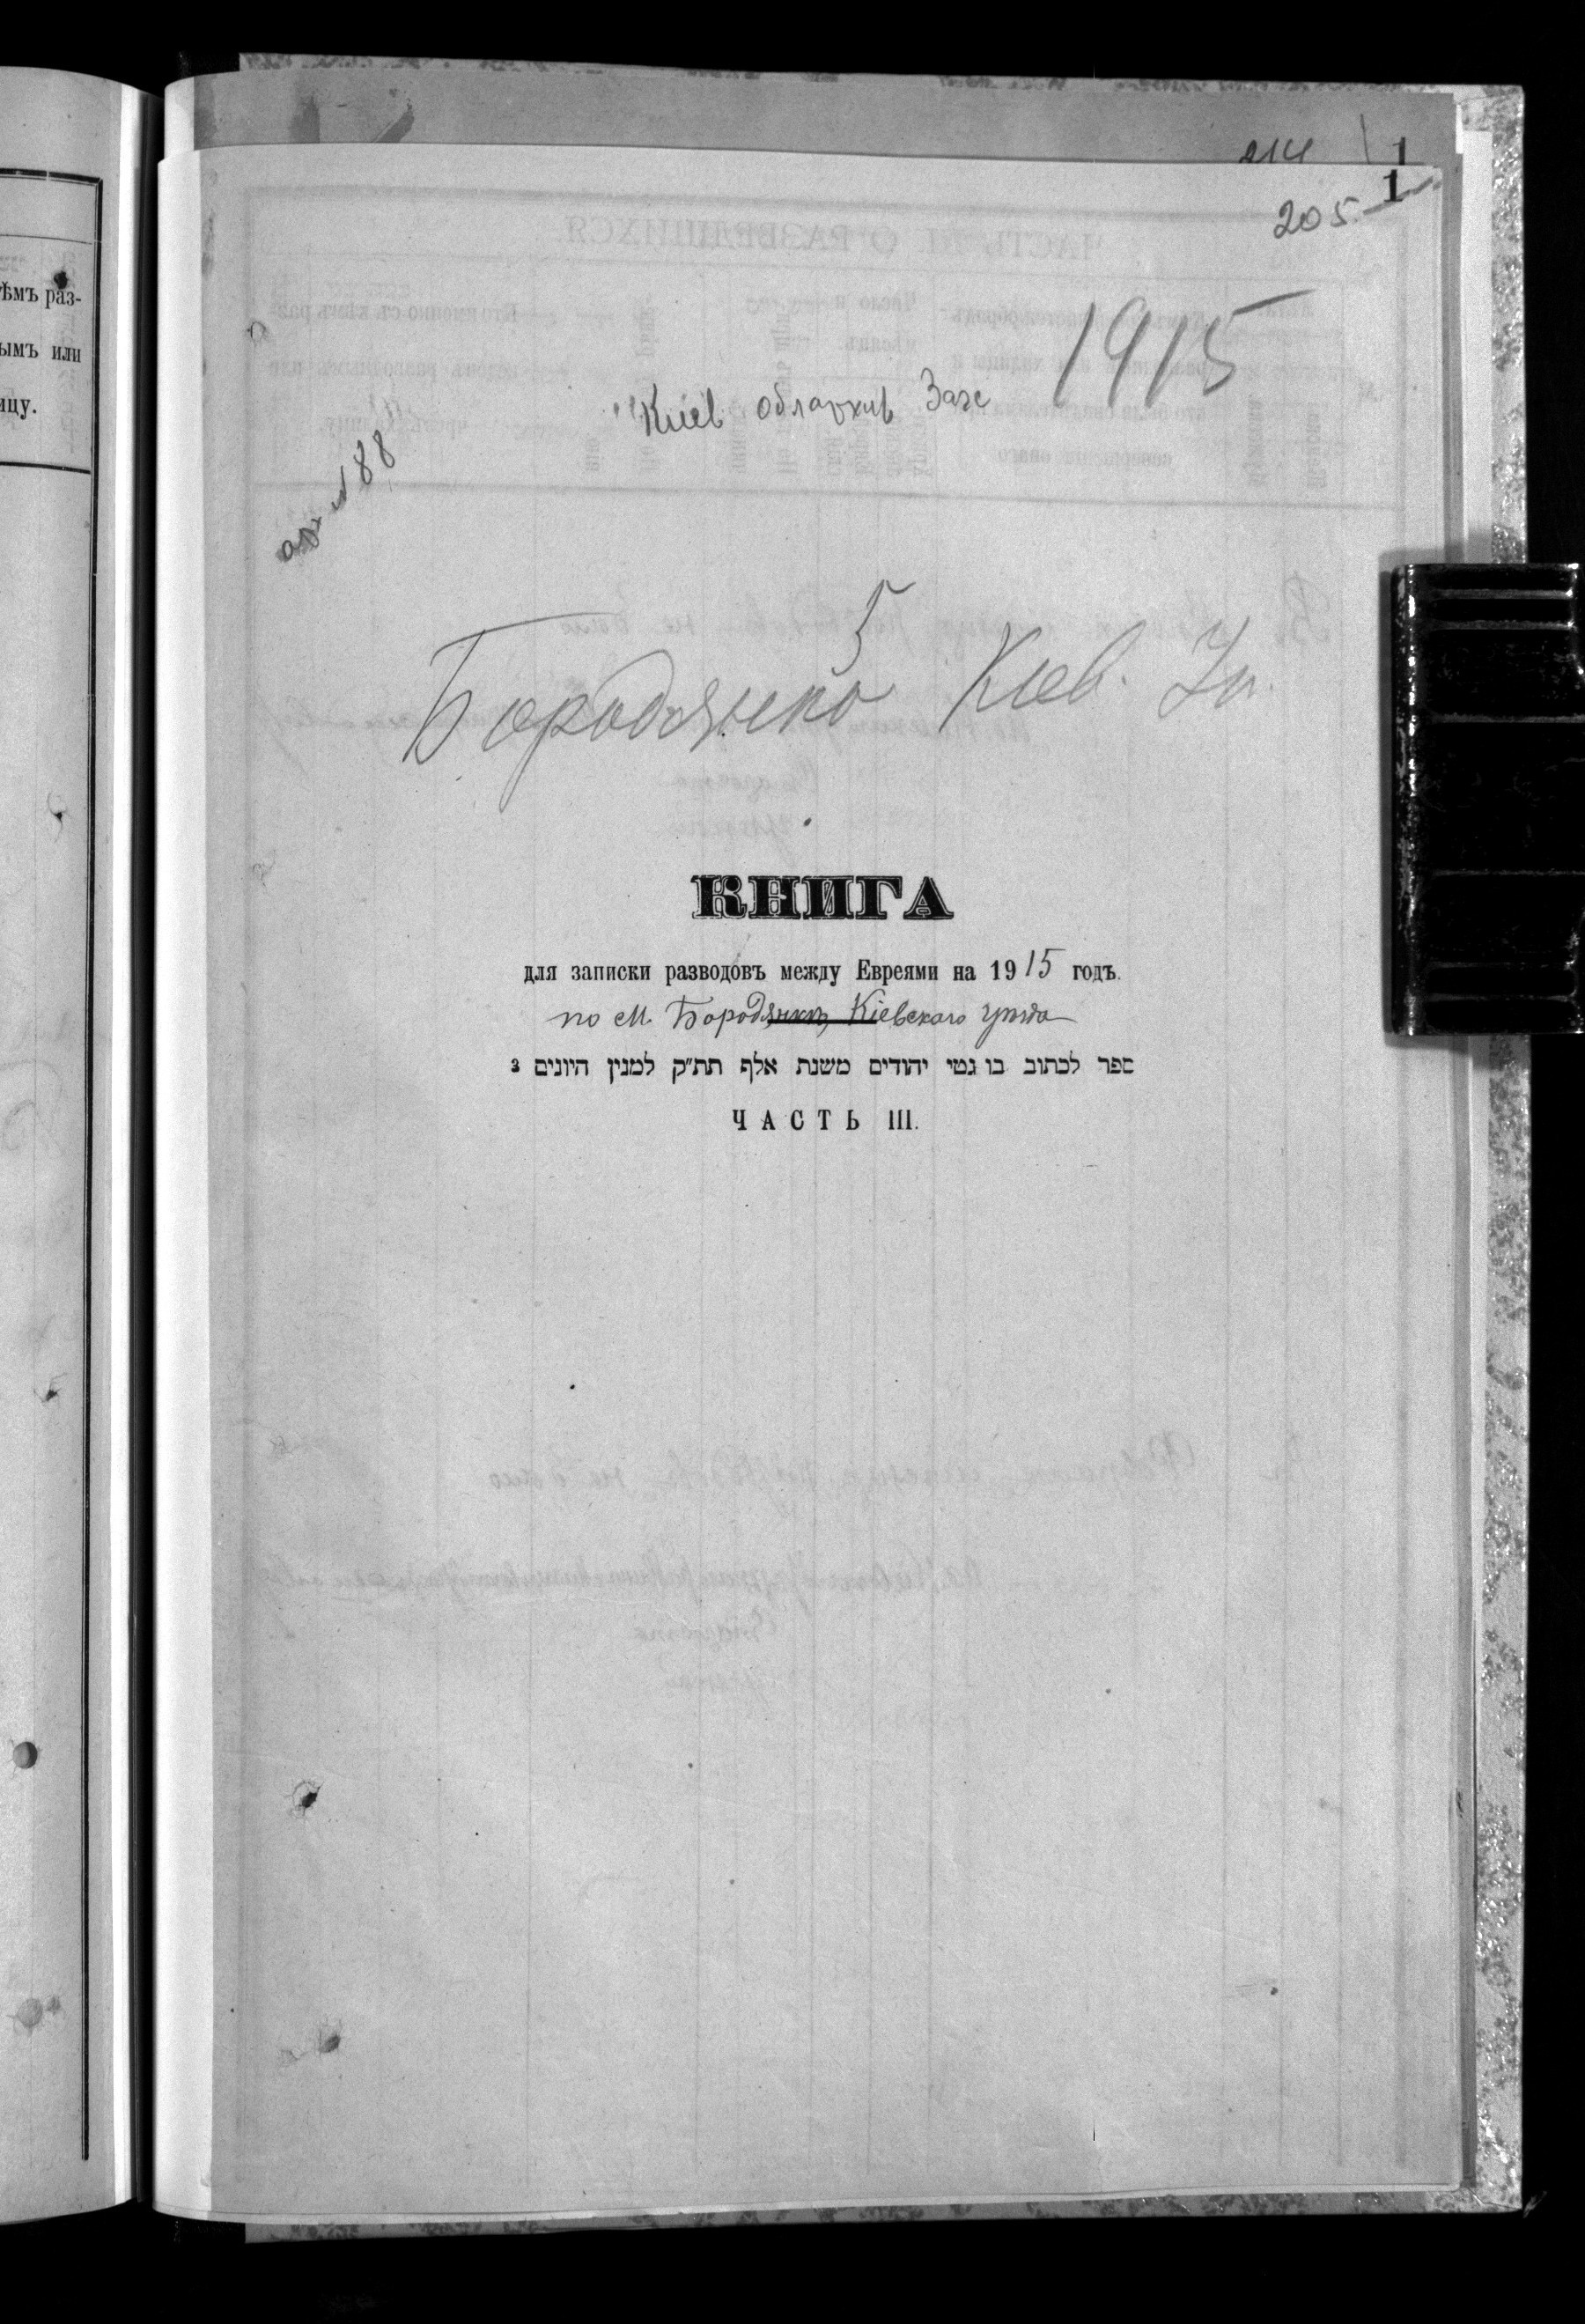 ѣмъ раз-
ымъ или
ицу.
214 1
205 1
1915
Киев облархив Загс
арх №88
5
Бородянка Кіев. Уѣ.
КНИГА
для записки разводовъ между Евреями на 1915 годъ.
по м. Бородянкѣ, Кіевскаго уѣзда
ספר לכתוב בו גטי יהודים משנת אלף תת״ק למנין היונים 3
ЧАСТЬ III.